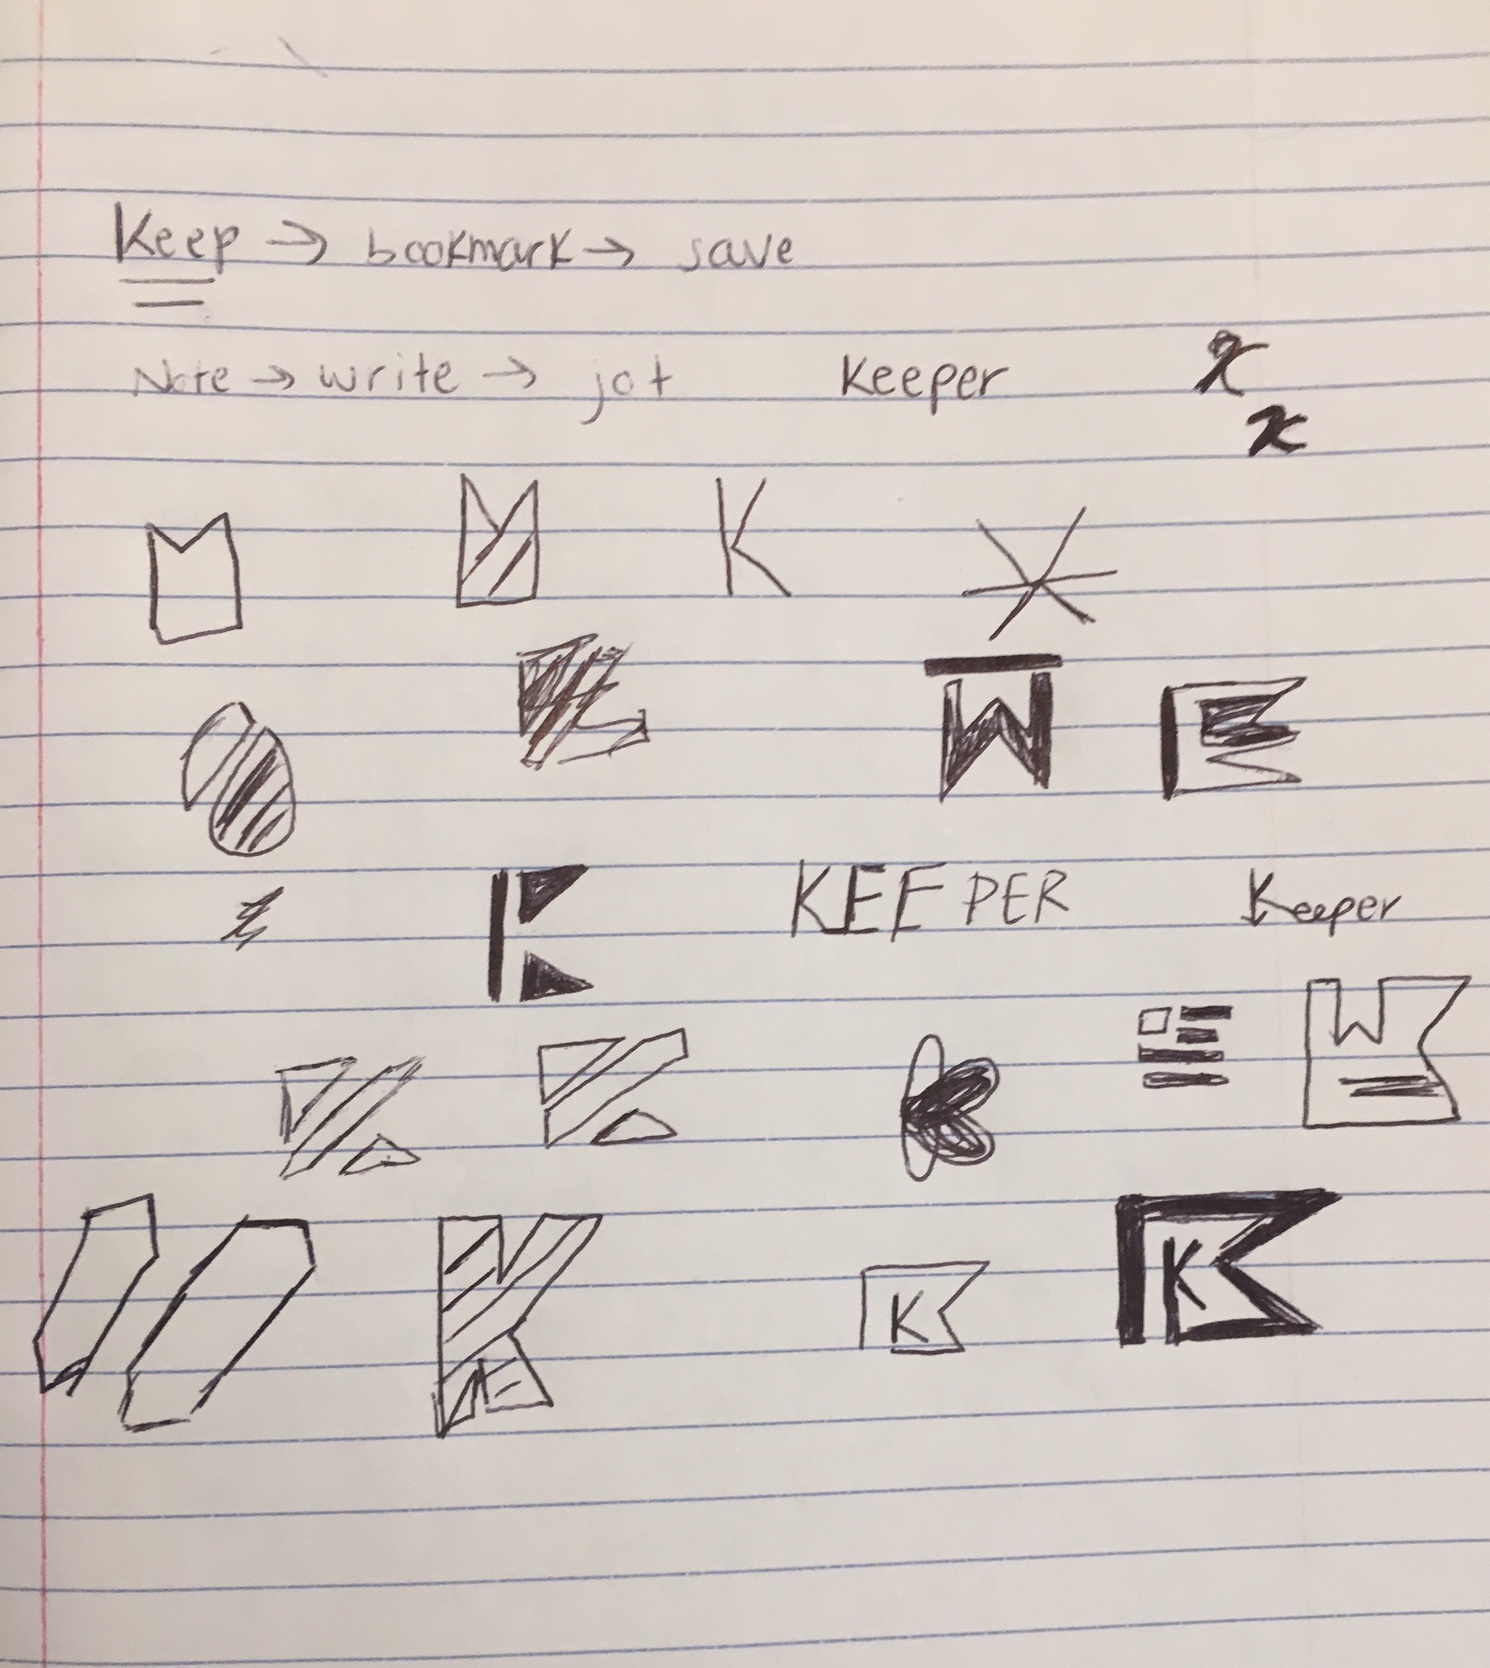 Keep → bookmark → save
Note → write → jot Keeper K
K
K
KEEPER Keeper
K K